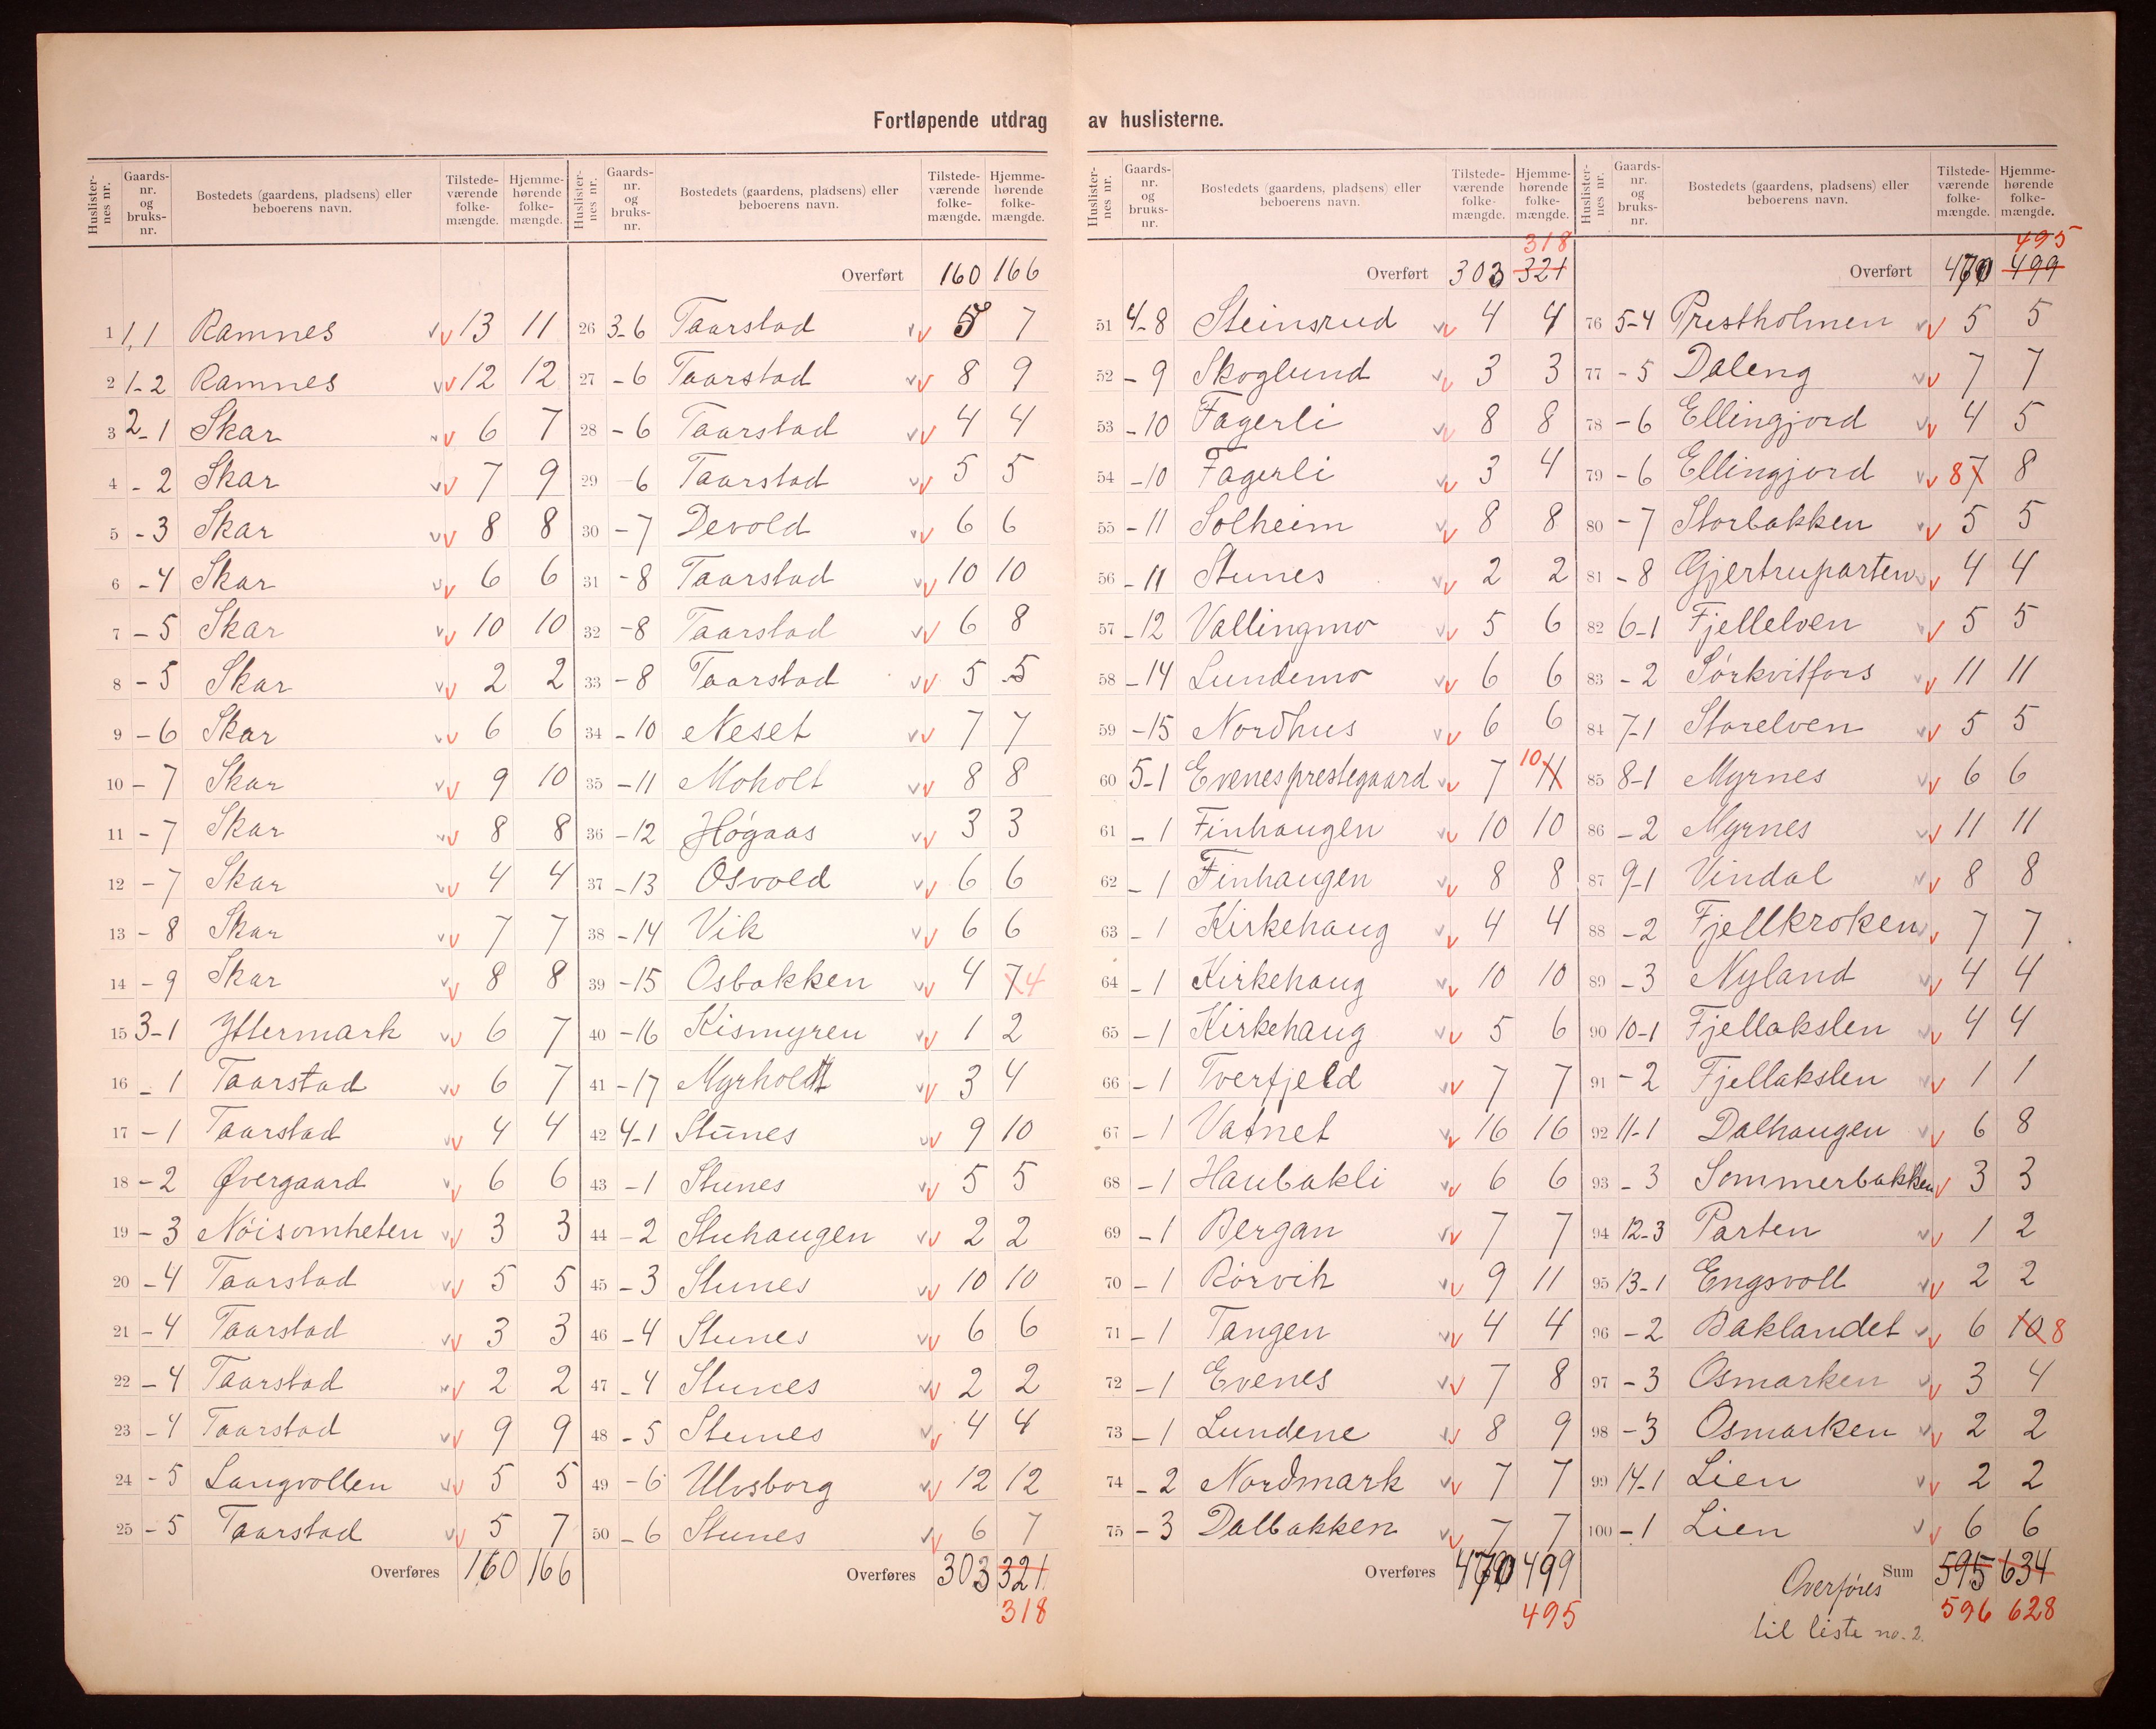 Fortløpende utdrag av huslisterne.
Huslister-nes nr. | Gaards-nr. og bruks-nr. | Bostedets (gaardens, pladsens) eller beboerens navn. | Tilstede-værende folke-mængde. | Hjemme-hørende folke-mængde.
1 1,1 Ramnes vv 13 11
2 1-2 Ramnes vv 12 12
3 2-1 Skar vv 6 7
4 - 2 Skar vv 7 9
5 - 3 Skar vv 8 8
6 - 4 Skar vv 6 6
7 - 5 Skar vv 10 10
8 - 5 Skar vv 2 2
9 - 6 Skar vv 6 6
10 - 7 Skar vv 9 10
11 - 7 Skar vv 8 8
12 - 7 Skar vv 4 4
13 - 8 Skar vv 7 7
14 - 9 Skar vv 8 8
15 3-1 Yttermark vv 6 7
16 - 1 Taarstad vv 6 7
17 - 1 Taarstad vv 4 4
18 - 2 Øvergaard vv 6 6
19 - 3 Nöisomheten vv 3 3
20 - 4 Taarstad vv 5 5
21 - 4 Taarstad vv 3 3
22 - 4 Taarstad vv 2 2
23 - 4 Taarstad vv 9 9
24 - 5 Langvollen vv 5 5
25 - 5 Taarstad vv 5 7
Overføres 160 166
Huslister-nes nr. | Gaards-nr. og bruks-nr. | Bostedets (gaardens, pladsens) eller beboerens navn. | Tilstede-værende folke-mængde. | Hjemme-hørende folke-mængde.
Overført 160 166
26 3-6 Taarstad vv 5 7
27 - 6 Taarstad vv 8 9
28 - 6 Taarstad vv 4 4
29 - 6 Taarstad vv 5 5
30 - 7 Devold vv 6 6
31 - 8 Taarstad vv 10 10
32 - 8 Taarstad vv 6 8
33 - 8 Taarstad vv 5 5
34 - 10 Neset vv 7 7
35 - 11 Moholt vv 8 8
36 - 12 Högaas vv 3 3
37 - 13 Osvold vv 6 6
38 - 14 Vik vv 6 6
39 - 15 Osbakken vv 4 7 4
40 - 16 Kismyren vv 1 2
41 - 17 Myrholt vv 3 4
42 4-1 Stunes vv 9 10
43 - 1 Stunes vv 5 5
44 - 2 Stuhaugen vv 2 2
45 - 3 Stunes vv 10 10
46 - 4 Stunes vv 6 6
47 - 4 Stunes vv 2 2
48 - 5 Stunes vv 4 4
49 - 6 Ulvsborg vv 12 12
50 - 6 Stunes vv 6 7
Overføres 303 321
318
Huslister-nes nr. | Gaards-nr. og bruks-nr. | Bostedets (gaardens, pladsens) eller beboerens navn. | Tilstede-værende folke-mængde. | Hjemme-hørende folke-mængde.
318
Overført 303 321
51 4-8 Steinsrud vv 4 4
52 - 9 Skoglund vv 3 3
53 - 10 Fagerli vv 8 8
54 - 10 Fagerli vv 3 4
55 - 11 Solheim vv 8 8
56 - 11 Stunes vv 2 2
57 - 12 Vallingmo vv 5 6
58 - 14 Lundemo vv 6 6
59 - 15 Nordhus vv 6 6
60 5-1 Evenesprestegaard vv 7 10 11
61 - 1 Finhaugen vv 10 10
62 - 1 Finhaugen vv 8 8
63 - 1 Kirkehaug vv 4 4
64 - 1 Kirkehaug vv 10 10
65 - 1 Kirkehaug vv 5 6
66 - 1 Tverfjeld vv 7 7
67 - 1 Vatnet vv 16 16
68 - 1 Haubakli vv 6 6
69 - 1 Bergan vv 7 7
70 - 1 Rörvik vv 9 11
71 - 1 Tangen vv 4 4
72 - 1 Evenes vv 7 8
73 - 1 Lundene vv 8 9
74 - 2 Nordmark vv 7 7
75 - 3 Dalbakken vv 7 7
Overføres 470 499
495
Huslister-nes nr. | Gaards-nr. og bruks-nr. | Bostedets (gaardens, pladsens) eller beboerens navn. | Tilstede-værende folke-mængde. | Hjemme-hørende folke-mængde.
495
Overført 470 499
76 5-4 Prestholmen vv 5 5
77 - 5 Daleng vv 7 7
78 - 6 Ellingjord vv 4 5
79 - 6 Ellingjord vv 8 7 8
80 - 7 Storbakken vv 5 5
81 - 8 Gjertruparten vv 4 4
82 6-1 Fjellelven vv 5 5
83 - 2 Sörkvitfors vv 11 11
84 7-1 Storelven vv 5 5
85 8-1 Myrnes vv 6 6
86 - 2 Myrnes vv 11 11
87 9-1 Vindal vv 8 8
88 - 2 Fjellkroken vv 7 7
89 - 3 Nyland vv 4 4
90 10-1 Fjellakslen vv 4 4
91 - 2 Fjellakslen vv 1 1
92 11-1 Dalhaugen vv 6 8
93 - 3 Sommerbakken v 3 3
94 12-3 Parten vv 1 2
95 13-1 Engsvoll vv 2 2
96 - 2 Baklandet vv 6 10 8
97 - 3 Osmarken vv 3 4
98 - 3 Osmarken vv 2 2
99 14-1 Lien vv 2 2
100 - 1 Lien vv 6 6
Sum 595 634
Overføres 596 628
til liste no. 2.